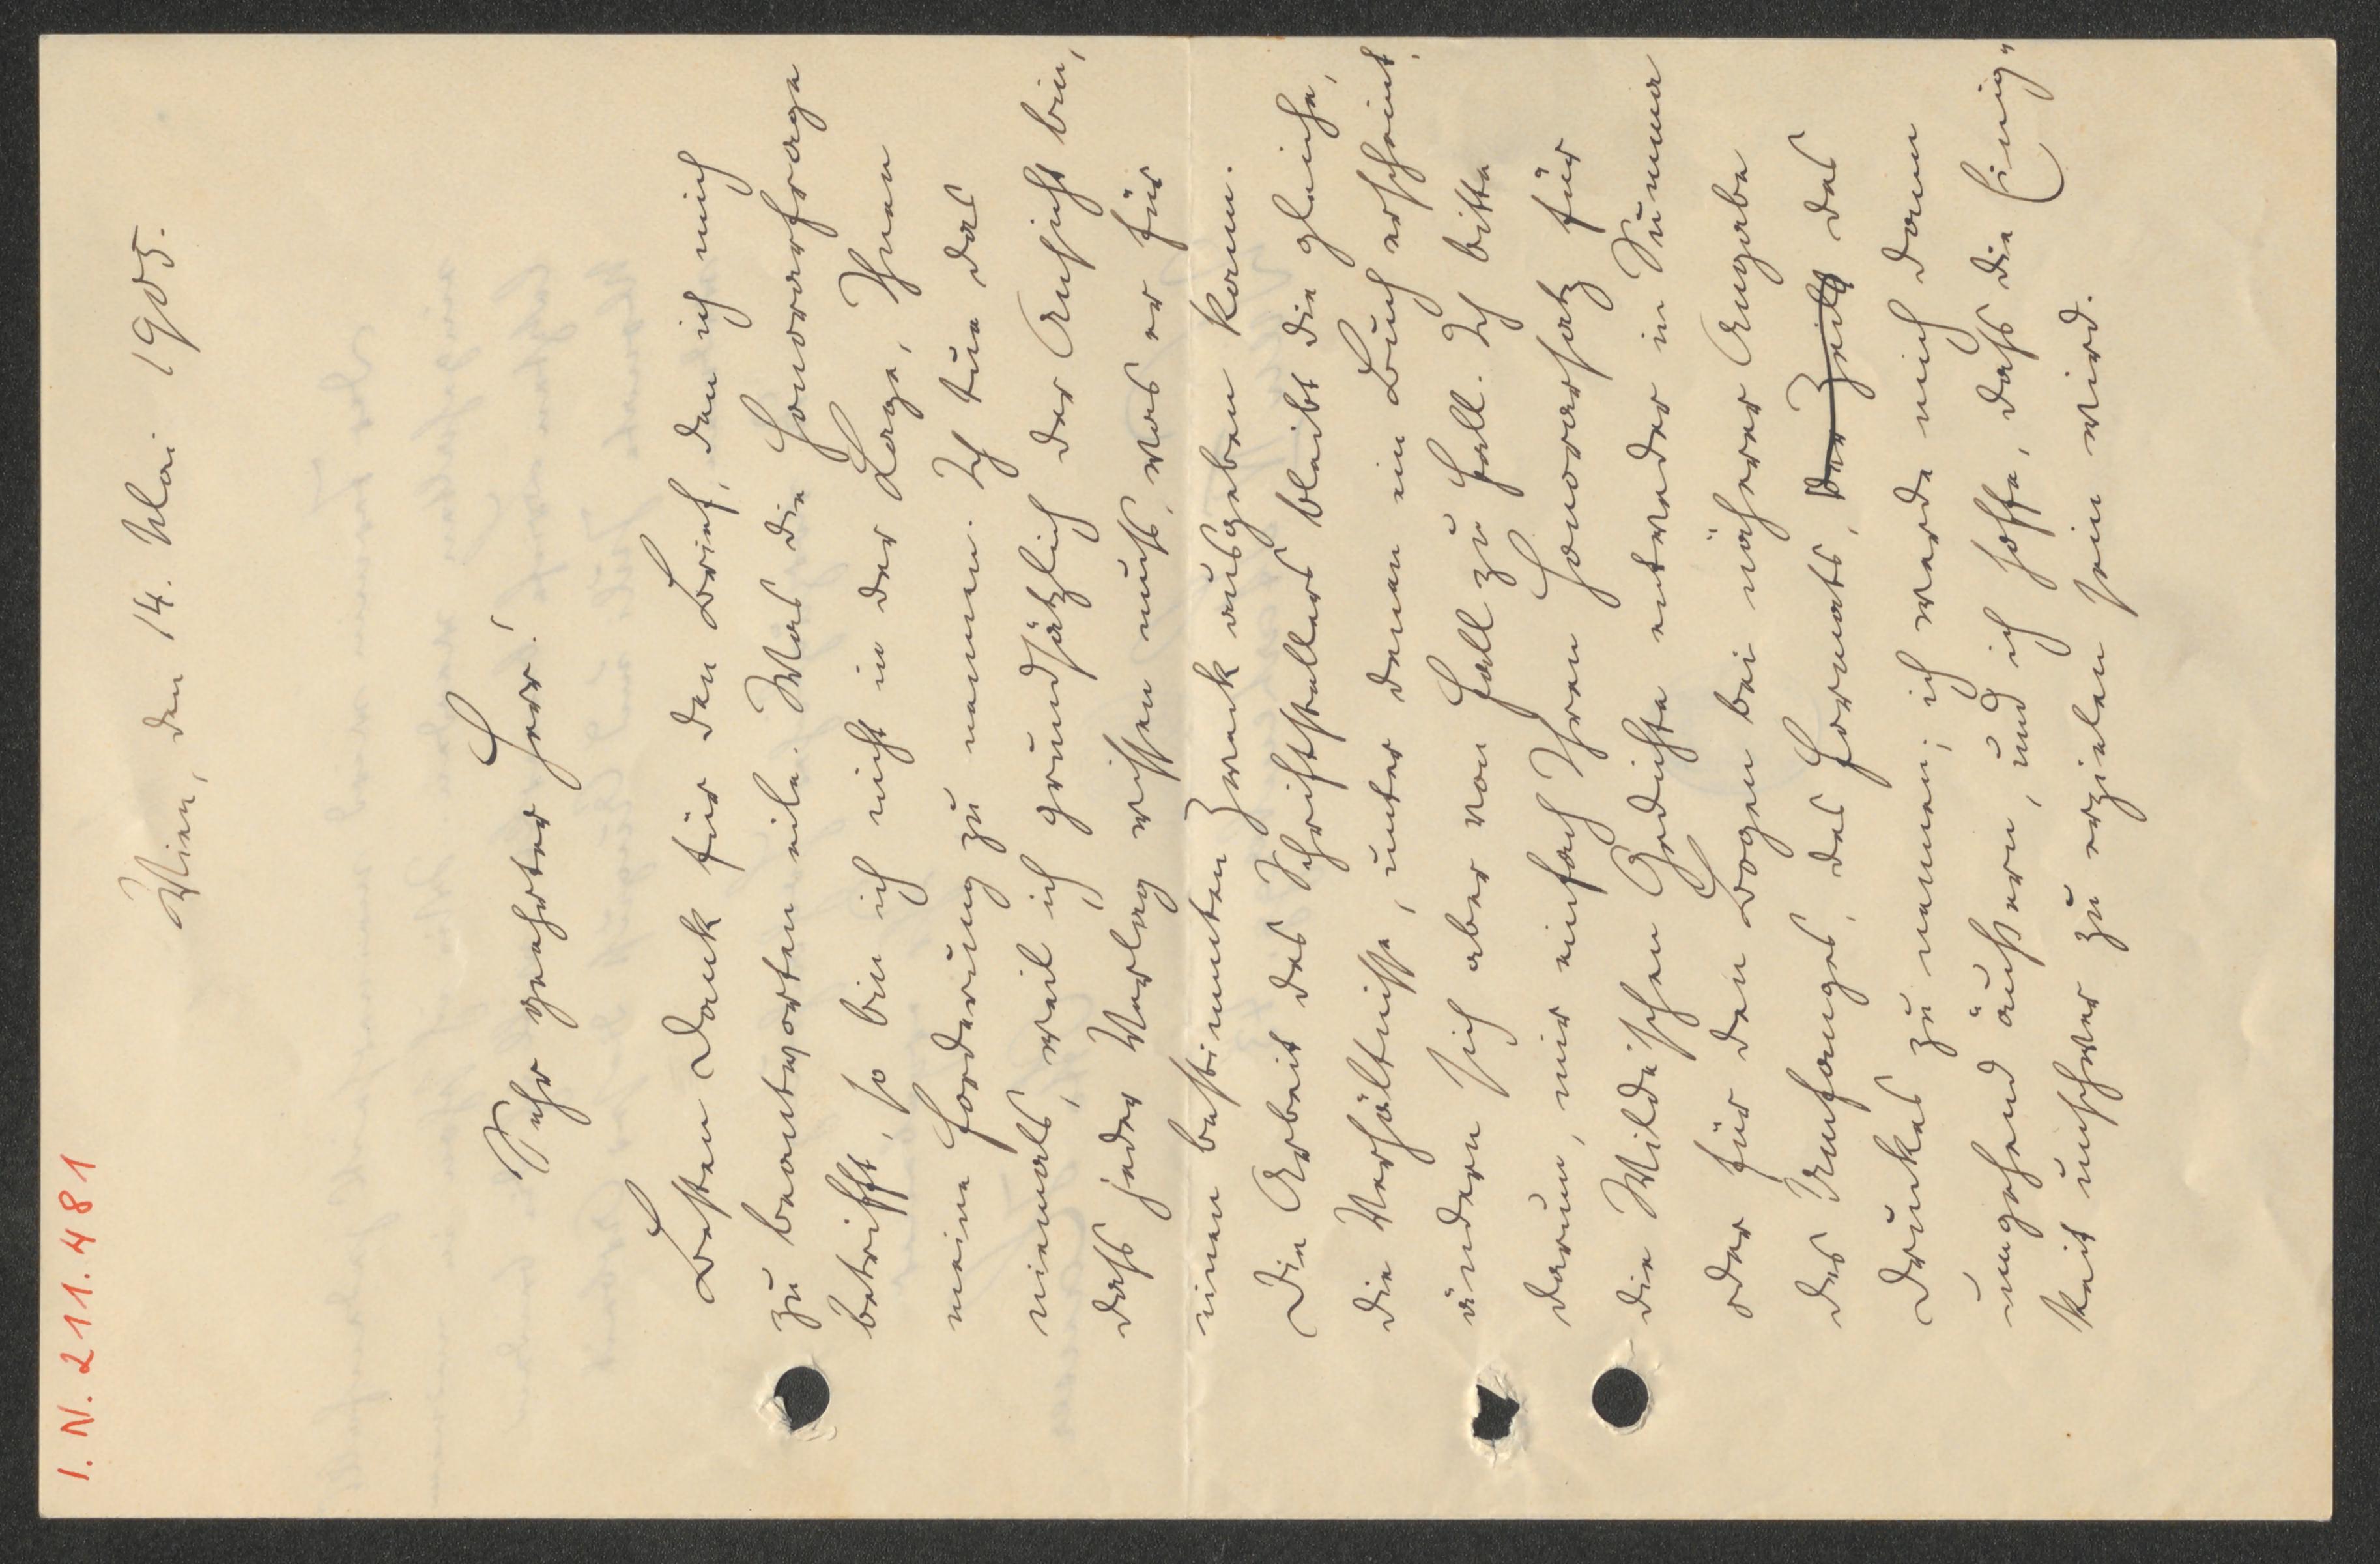 I. N. 211.481
Wien, den 14. Mai 1905.
Sehr geehrter Herr!
Besten Dank für den Brief, den ich mich
zu beantworten eile. Was die Honorarfrage
betrifft, so bin ich nicht in der Lage, Ihnen
meine Forderung zu nennen. Ich tue das
niemals, weil ich grundsätzlich der Ansicht bin,
dass jeder Verlag wissen muss, was er für
einen bestimmten Zweck ausgeben kann.
Die Arbeit des Schriftstellers bleibt die gleiche,
die Verhältnisse, unter denen ein Buch erscheint,
ändern sich aber von Fall zu Fall. Ich bitte
darum, mir einfach Ihren Honorarsatz für
die Wilde'schen Gedichte entweder in Summa
oder für den Bogen bei näherer Angabe
des Umfanges, des Formats, der Zeit, des
Druckes zu nennen; ich werde mich dann
umgehend äußern, und ich hoffe, dass die Einig-
keit unschwer zu erzielen sein wird.